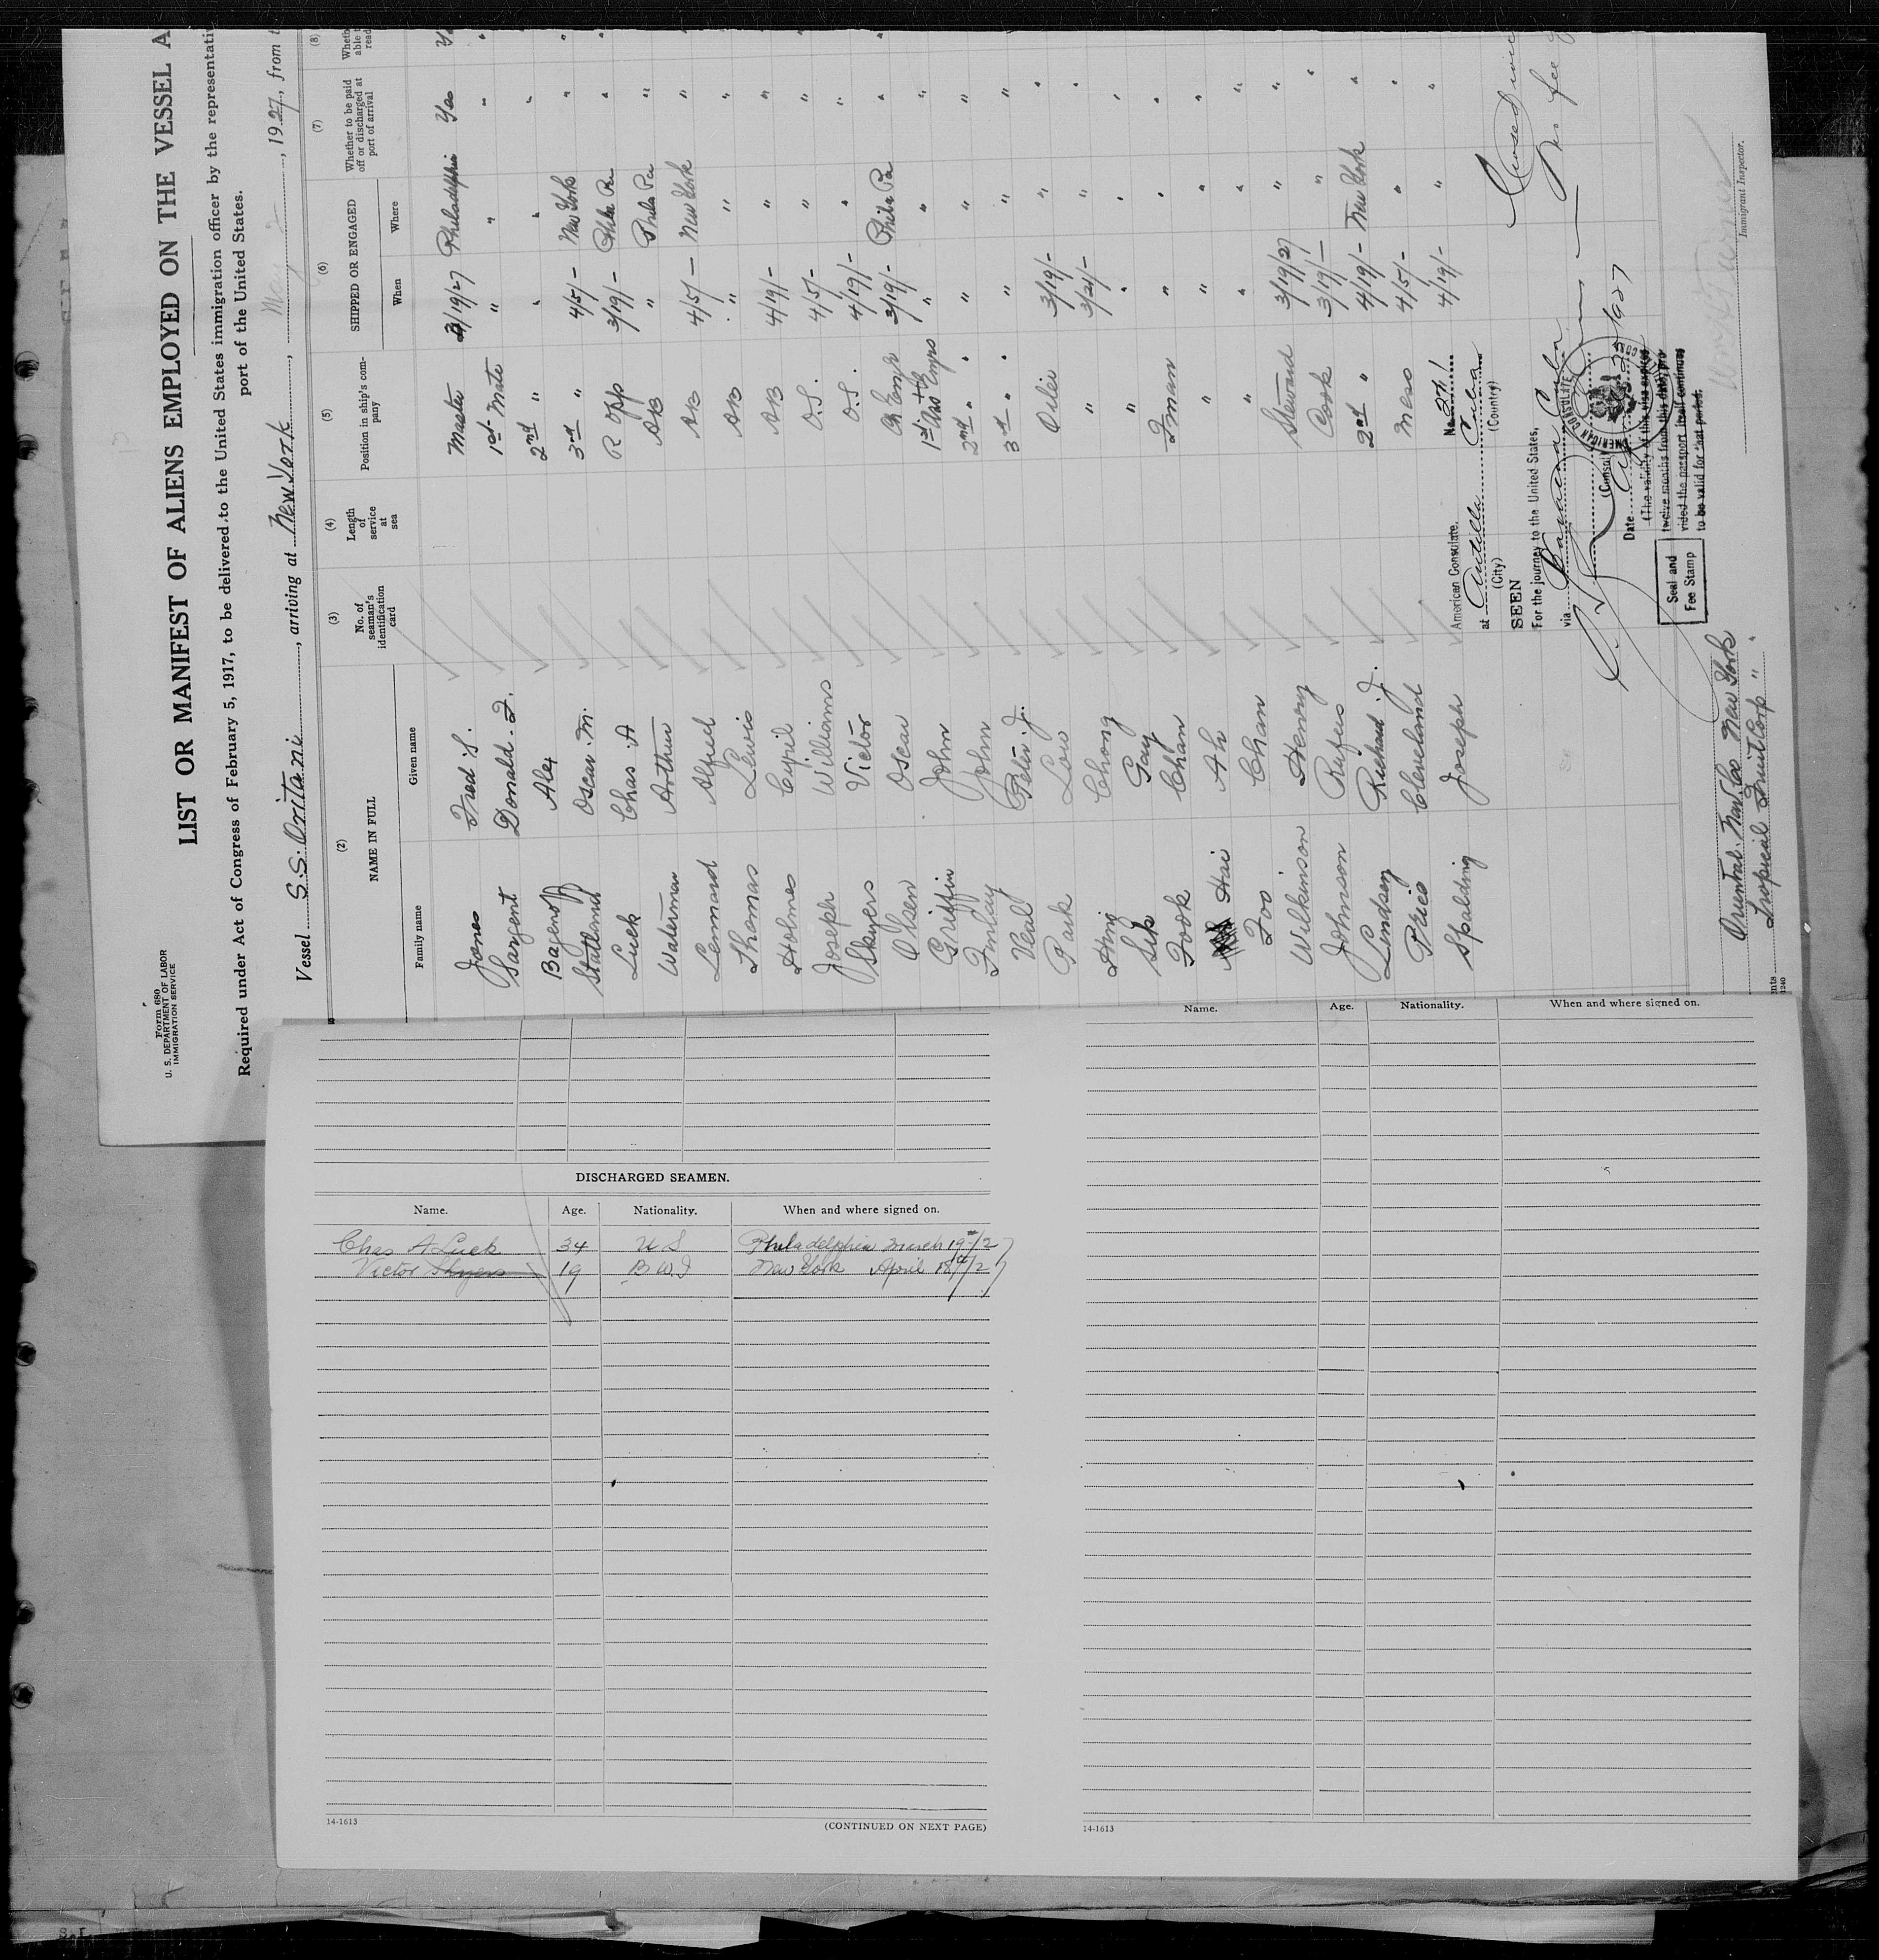 Form 680
U. S. DEPARTMENT OF LABOR
IMMIGRATION SERVICE
LIST OR MANIFEST OF ALIENS EMPLOYED ON THE VESSEL A
Required under Act of Congress of February 5, 1917, to be delivered to the United States immigration officer by the representati
port of the United States.
Vessel S.S. Oritani, arriving at New York, May 2, 1927, from t
(2) (3) (4) (5) (6) (7) (8)
NAME IN FULL No. of seaman's identification card Length of service at sea Position in ship's company SHIPPED OR ENGAGED Whether to be paid off or discharged at port of arrival Wheth able t read
Family name Given name When Where
Jones Fred S. Master 3/19/27 Philadelphia Yes Ye
Sargent Donald. F. 1st Mate " " "
Bagenoff Alex 2nd " " "
Statland Oscar. M. 3rd " 4/5/- New York " "
Luck Chas. A R Opp 3/19/- Phila Pa " "
Waterman Arthur AB " Phila Pa "
Lemard Alfred AB 4/5/- New York "
Thomas Lewis AB " " "
Holmes Cyril AB 4/19/- " "
Joseph Williams O.S. 4/5/- " "
Skyers Victor O.S. 4/19/- " "
Olsen Oscar Ch Engr 3/19/- Phila Pa " "
Griffin John 1st Ass't Engrs " " "
Finlay John 2nd " " " " "
Veal Peter. J. 3rd " " " " "
Park Low Oiler 3/19/- " "
Hing Chong " 3/21/- " "
Sik Gay " " " "
Fook Chan Fman " " "
Hai Ah " " " "
Foo Chan " " " "
Wilkinson Henry Steward 3/19/27 " "
Johnson Rufus Cook 3/19/- " "
Lindsey Richard. J. 2nd " 4/19/- New York "
Price Cleveland Mess 4/5/- " "
Spalding Joseph 4/19/- " "
No. 271
American Consulate,
at Antilla Cuba
(City) (Country)
SEEN
For the journey to the United States,
via Cuba
(Consul
AMERICAN CONSULATE
Date 1927
(The validity of this visa expires
twelve months from this date, pro
vided the passport itself continues
to be valid for that period.
Seal and
Fee Stamp
No fee
Oriental Nav. Co New York
Tropical Fruit Corp " "
Immigrant Inspector.
DISCHARGED SEAMEN.
Name. Age. Nationality. When and where signed on.
Chas A Luck 34 U S Philadelphia March 19th/27
Victor Skyers 19 B.W.I New York April 18th/27
14-1613 (CONTINUED ON NEXT PAGE)
Name. Age. Nationality. When and where signed on.
14-1613